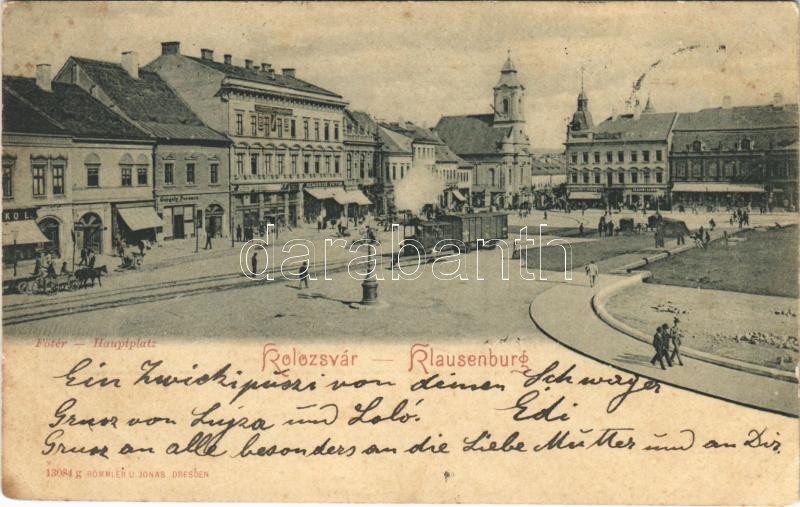 KOL
Gergely Ferencz
darabanth.com
Főtér — Hauptplatz
Kolozsvár — Klausenburg
Ein Zwickipüszi von deinen Schwager
Gruss von Lujza und Loló. Edi
Gruss an alle besonders an die Liebe Mutter und an Dir.
13084 g RÖMMLER U. JONAS, DRESDEN